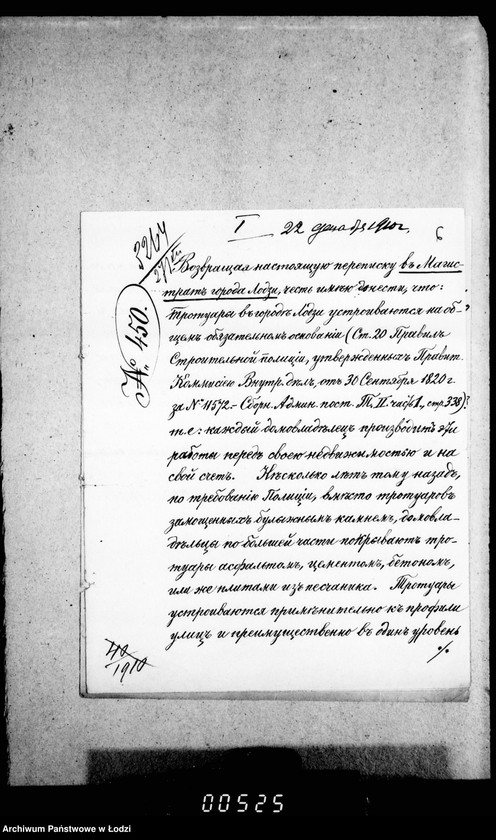 I 22 декабря 1910 г. 6
3264
27/XII
№ 450.
Возвращая настоящую переписку въ Магис-
тратъ города Лодзи, честь имѣю донести, что:
Тротуары въ городѣ Лодзи устроиваются на об-
щемъ обязательномъ основаніи (Ст. 20 Правилъ
Строительной полиціи, утвержденныхъ Правит.
Коммисіею Внутр. дѣлъ, отъ 30 Сентября 1820 г.
за № 11572.– Сборн. Админ. пост. Т. II. часть 1, стр. 338)
т. е: каждый домовладѣлецъ производитъ эти
работы передъ своею недвижимостью и на
свой счетъ. Нѣсколько лѣтъ тому назадъ,
по требованію Полиціи, вмѣсто тротуаровъ
замощенныхъ булыжнымъ камнемъ, домовла-
дѣльцы по большей части покрываютъ тро-
туары асфальтомъ, цементомъ, бетономъ,
или же плитами изъ песчаника. Тротуары
устроиваются примѣнительно къ профили
улицъ и преимущественно въ одинъ уровень
./.
40/1910
00525
Archiwum Państwowe w Łodzi